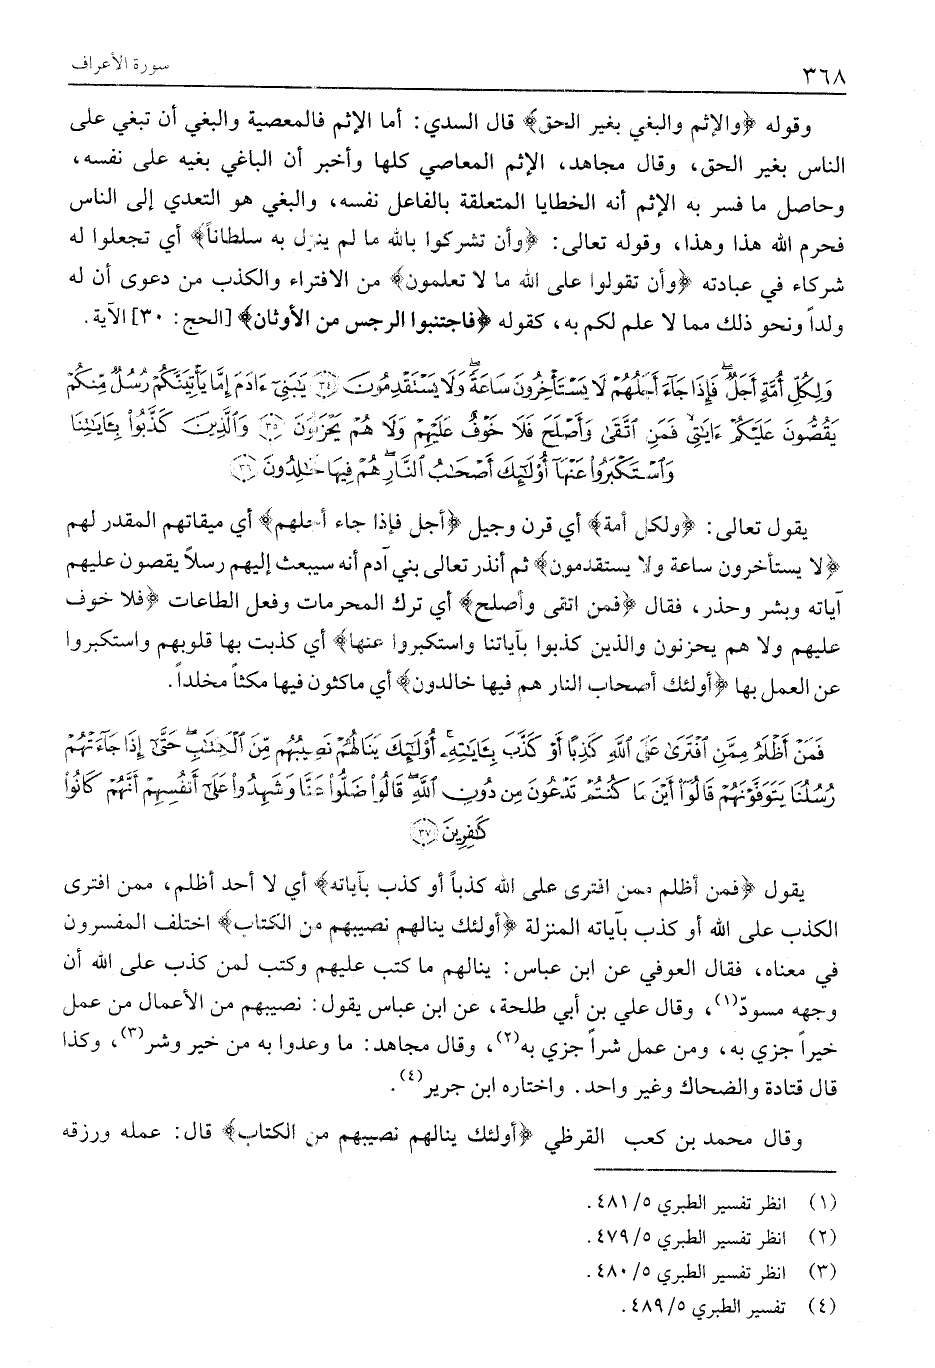 ٣٦٨
سورة الأعراف
وقوله ﴿والإثم والبغي بغير الحق﴾ قال السدي: أما الإثم فالمعصية والبغي أن تبغي على
الناس بغير الحق، وقال مجاهد، الإثم المعاصي كلها وأخبر أن الباغي بغيه على نفسه،
وحاصل ما فسر به الإثم أنه الخطايا المتعلقة بالفاعل نفسه، والبغي هو التعدي إلى الناس
فحرم الله هذا وهذا، وقوله تعالى: ﴿وأن تشركوا بالله ما لم ينزل به سلطاناً﴾ أي تجعلوا له
شركاء في عبادته ﴿وأن تقولوا على الله ما لا تعلمون﴾ من الافتراء والكذب من دعوى أن له
ولداً ونحو ذلك مما لا علم لكم به، كقوله ﴿فاجتنبوا الرجس من الأوثان﴾ [الحج: ٣٠] الآية.
وَلِكُلِّ أُمَّةٍ أَجَلٌ ۖ فَإِذَا جَآءَ أَجَلُهُمْ لَا يَسْتَأْخِرُونَ سَاعَةً ۖ وَلَا يَسْتَقْدِمُونَ ﴿٣٤﴾ يَٰبَنِىٓ ءَادَمَ إِمَّا يَأْتِيَنَّكُمْ رُسُلٌ مِّنكُمْ
يَقُصُّونَ عَلَيْكُمْ ءَايَٰتِى ۙ فَمَنِ ٱتَّقَىٰ وَأَصْلَحَ فَلَا خَوْفٌ عَلَيْهِمْ وَلَا هُمْ يَحْزَنُونَ ﴿٣٥﴾ وَٱلَّذِينَ كَذَّبُوا۟ بِـَٔايَٰتِنَا
وَٱسْتَكْبَرُوا۟ عَنْهَآ أُو۟لَٰٓئِكَ أَصْحَٰبُ ٱلنَّارِ ۖ هُمْ فِيهَا خَٰلِدُونَ ﴿٣٦﴾
يقول تعالى: ﴿ولكل أمة﴾ أي قرن وجيل ﴿أجل فإذا جاء أجلهم﴾ أي ميقاتهم المقدر لهم
﴿لا يستأخرون ساعة ولا يستقدمون﴾ ثم أنذر تعالى بني آدم أنه سيبعث إليهم رسلاً يقصون عليهم
آياته وبشر وحذر، فقال ﴿فمن اتقى وأصلح﴾ أي ترك المحرمات وفعل الطاعات ﴿فلا خوف
عليهم ولا هم يحزنون والذين كذبوا بآياتنا واستكبروا عنها﴾ أي كذبت بها قلوبهم واستكبروا
عن العمل بها ﴿أولئك أصحاب النار هم فيها خالدون﴾ أي ماكثون فيها مكثاً مخلداً.
فَمَنْ أَظْلَمُ مِمَّنِ ٱفْتَرَىٰ عَلَى ٱللَّهِ كَذِبًا أَوْ كَذَّبَ بِـَٔايَٰتِهِۦٓ ۚ أُو۟لَٰٓئِكَ يَنَالُهُمْ نَصِيبُهُم مِّنَ ٱلْكِتَٰبِ ۖ حَتَّىٰٓ إِذَا جَآءَتْهُمْ
رُسُلُنَا يَتَوَفَّوْنَهُمْ قَالُوٓا۟ أَيْنَ مَا كُنتُمْ تَدْعُونَ مِن دُونِ ٱللَّهِ ۖ قَالُوا۟ ضَلُّوا۟ عَنَّا وَشَهِدُوا۟ عَلَىٰٓ أَنفُسِهِمْ أَنَّهُمْ كَانُوا۟
كَٰفِرِينَ ﴿٣٧﴾
يقول ﴿فمن أظلم ممن افترى على الله كذباً أو كذب بآياته﴾ أي لا أحد أظلم، ممن افترى
الكذب على الله أو كذب بآياته المنزلة ﴿أولئك ينالهم نصيبهم من الكتاب﴾ اختلف المفسرون
في معناه، فقال العوفي عن ابن عباس: ينالهم ما كتب عليهم وكتب لمن كذب على الله أن
وجهه مسودّ(١)، وقال علي بن أبي طلحة، عن ابن عباس يقول: نصيبهم من الأعمال من عمل
خيراً جزي به، ومن عمل شراً جزي به(٢)، وقال مجاهد: ما وعدوا به من خير وشر(٣)، وكذا
قال قتادة والضحاك وغير واحد. واختاره ابن جرير(٤).
وقال محمد بن كعب القرظي ﴿أولئك ينالهم نصيبهم من الكتاب﴾ قال: عمله ورزقه
(١) انظر تفسير الطبري ٥/ ٤٨١.
(٢) انظر تفسير الطبري ٥/ ٤٧٩.
(٣) انظر تفسير الطبري ٥/ ٤٨٠.
(٤) تفسير الطبري ٥/ ٤٨٩.